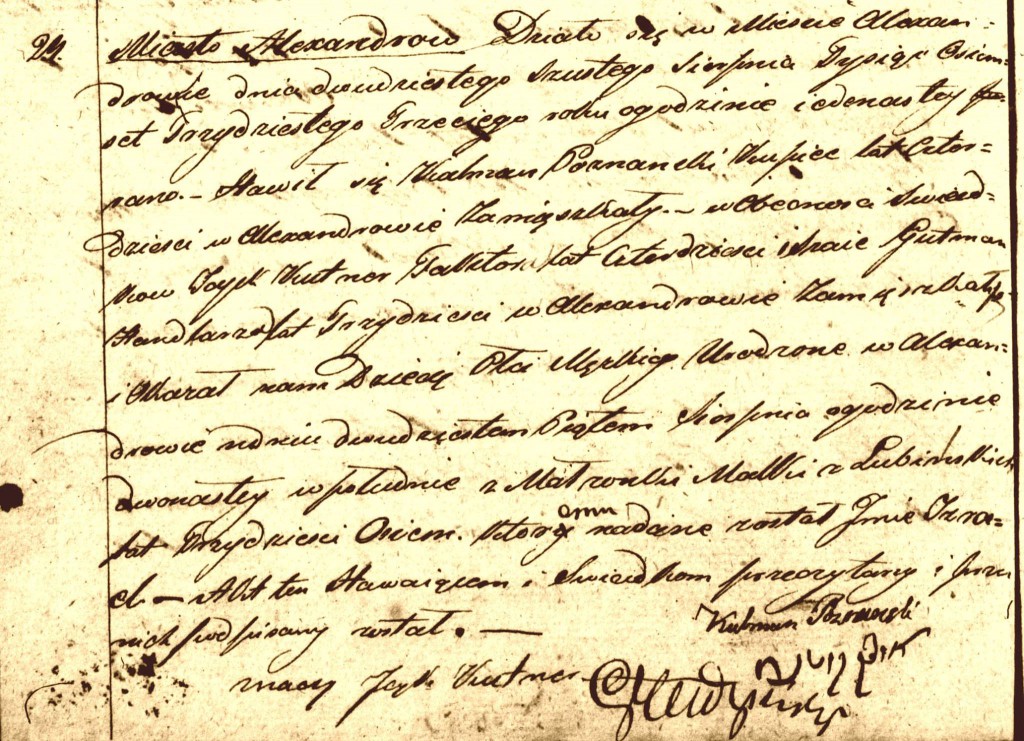 24. Miasto Alexandrow Działo się w Mieście Alexan-
drowie dnia dwudziestego Szustego Sierpnia Tysiąc Osiem-
set Trzydziestego Trzeciego roku ogodzinie iedenastey
rano. — Stawił się Kalman Poznanski Kupiec lat Czter-
dziesci w Alexandrowie Zamięszkały. — w Obecnosci Swiad-
kow Icyk Kutner Faktor lat Czterdziesci i Szaie Gutman
Handlarz lat Trzydziesci w Alexandrowie Zamięszkały
i Okazał nam Dziecię Płci Męzkiey Urodzone w Alexan-
drowie wdniu dwudziestem Piątem Sierpnia ogodzinie
dwonastey wpołudnie z Małzonki Malki z Lubinskich
lat Trzydziesci Osiem. ktoremu nadane zostało Jmie Izra-
el — Akt ten Stawaiącem i Swiadkom przeczytany i przez
nich podpisany został. —
Kalman Poznanski
Icyk Kutner